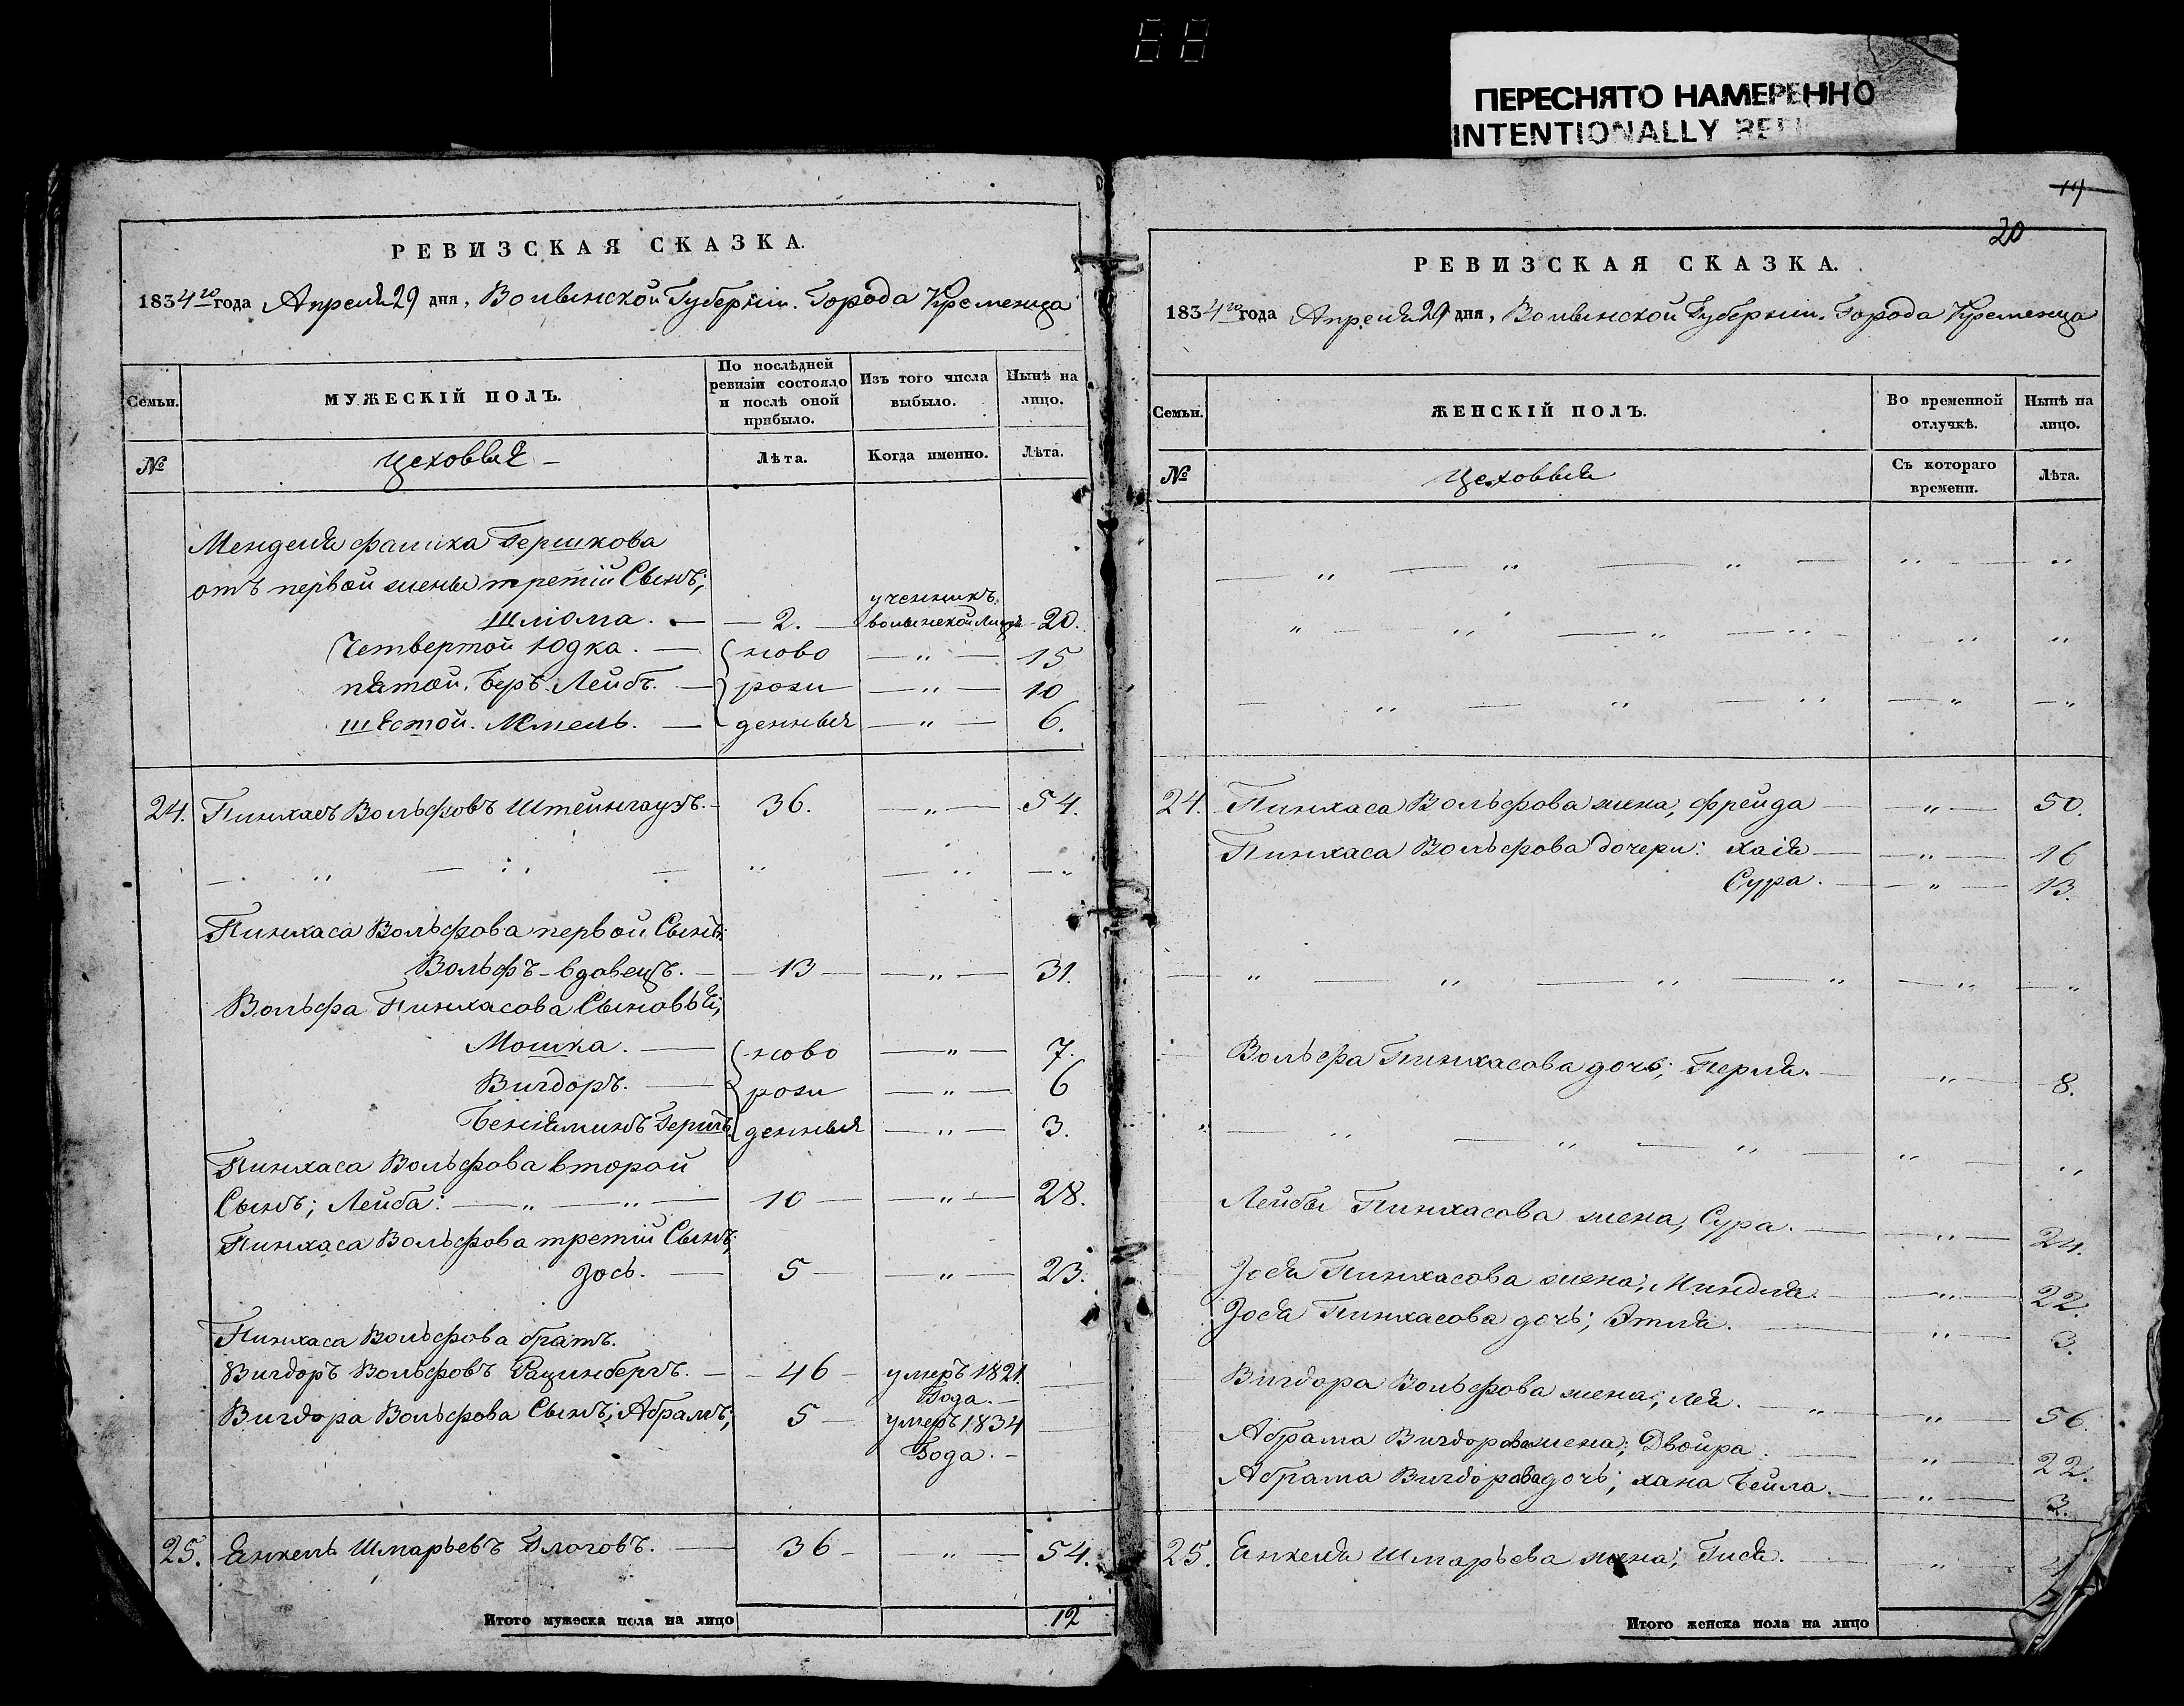 ПЕРЕСНЯТО НАМЕРЕННО
INTENTIONALLY
РЕВИЗСКАЯ СКАЗКА.
1834го года Апреля 29 дня, Волынской Губернии. Города Кременца
Семьи.
МУЖЕСКІЙ ПОЛЪ.
По послѣдней ревизіи состояло и послѣ оной прибыло.
Изъ того числа выбыло.
Нынѣ на лицо.
№
Цеховые
Лѣта.
Когда именно.
Лѣта.
Менделя Фалика Гершкова
отъ первой жены третій Сынъ;
Шліома. — 2. ученикъ волынской 20.
Четвертой Юдка. — ново — „ — 15
пятой. Беръ Лейбъ. — рож — „ — 10
шестой. — денные — „ — 6.
24. Пинхасъ Вольфовъ Штейнгаузъ. 36. — „ — 54.
Пинхаса Вольфова первой Сынъ:
Вольфъ - вдовецъ. — 13 — „ — 31.
Вольфа Пинхасова Сыновья;
Мошка. — ново — „ — 7.
Вигдоръ. — рож — „ — 6
Беніяминъ Гершъ — денные — „ — 3.
Пинхаса Вольфова второй
Сынъ; Лейба: — „ — „ — 10 — „ — 28.
Пинхаса Вольфова третій Сынъ;
Іось. — 5 — „ — 23.
Пинхаса Вольфова братъ.
Вигдоръ Вольфовъ Рацинбергъ. — 46 — умеръ 1821
Года. —
Вигдора Вольфова Сынъ; Абрамъ; 5 — умеръ 1834
Года. —
25. Янкель Шмарьевъ — 36 — „ — 54.
Итого мужеска пола на лицо 12
19
20
РЕВИЗСКАЯ СКАЗКА.
1834го года Апреля 29 дня, Волынской Губернии. Города Кременца
Семьи.
ЖЕНСКІЙ ПОЛЪ.
Во временной отлучкѣ.
Нынѣ на лицо.
№
Цеховые
Съ котораго времени.
Лѣта.
24. Пинхаса Вольфова жена, Фрейда — „ — 50.
Пинхаса Вольфова дочери: Хаія — „ — 16
Сура. — „ — 13.
Вольфа Пинхасова дочь; Перля. — „ — 8.
Лейбы Пинхасова жена, Сура. — „ — 24.
Іося Пинхасова жена; Миндля. — „ — 22.
Іося Пинхасова дочь; Этля. — „ — 3.
Вигдора Вольфова жена; Лея. — „ — „ — 56.
Абрама Вигдорова жена; Двойра. — „ — 22.
Абрама Вигдорова дочь; Хана Бейла. — „ — 3.
25. Янкеля Шмарьева жена; Гися. — „
Итого женска пола на лицо